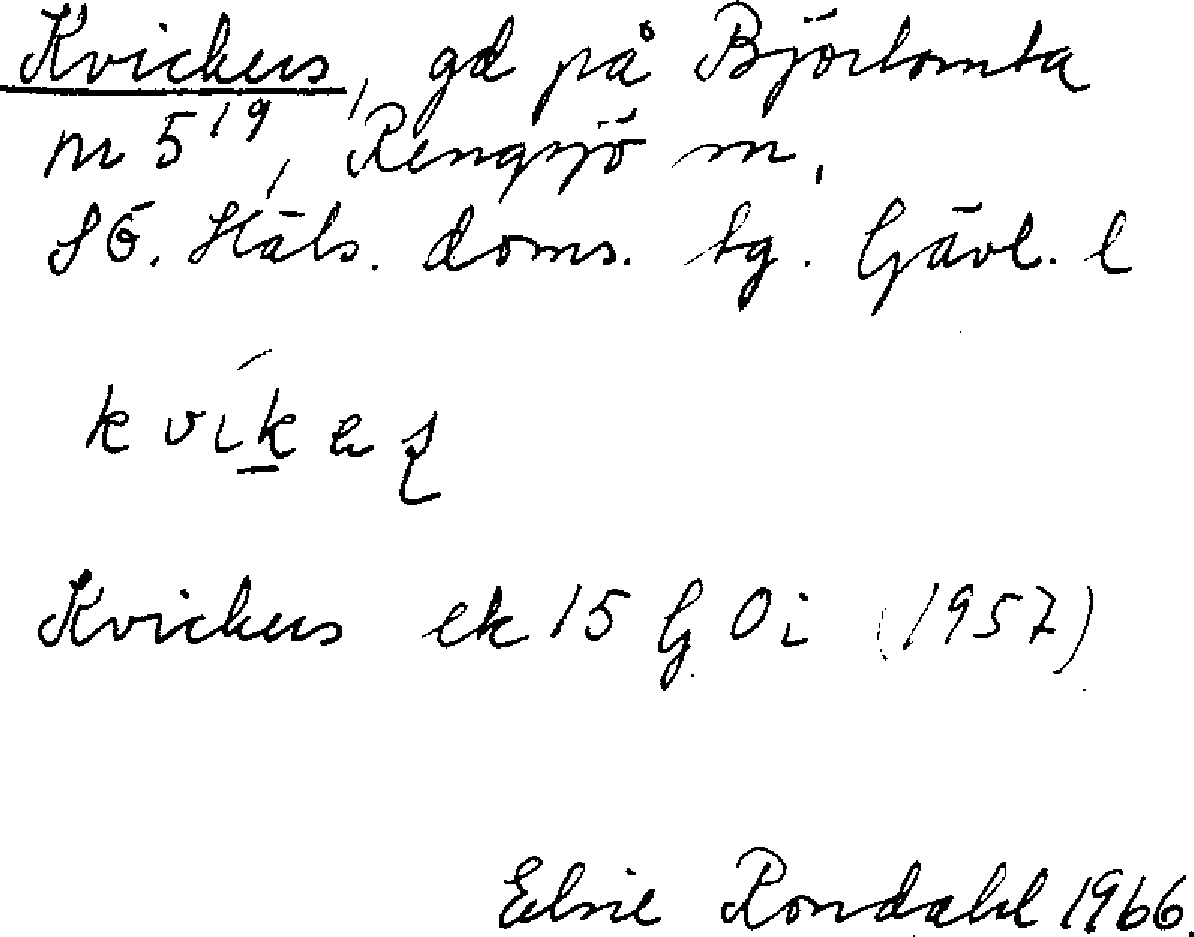 Kvickers, gd på Björtomta
nr 5¹⁹, Rengsjö sn,
SÖ. Häls. doms. tg. Gävl. l
kvíkes̨
Kvickers ek 15 G Oi (1957)
Elsie Rondahl 1966.